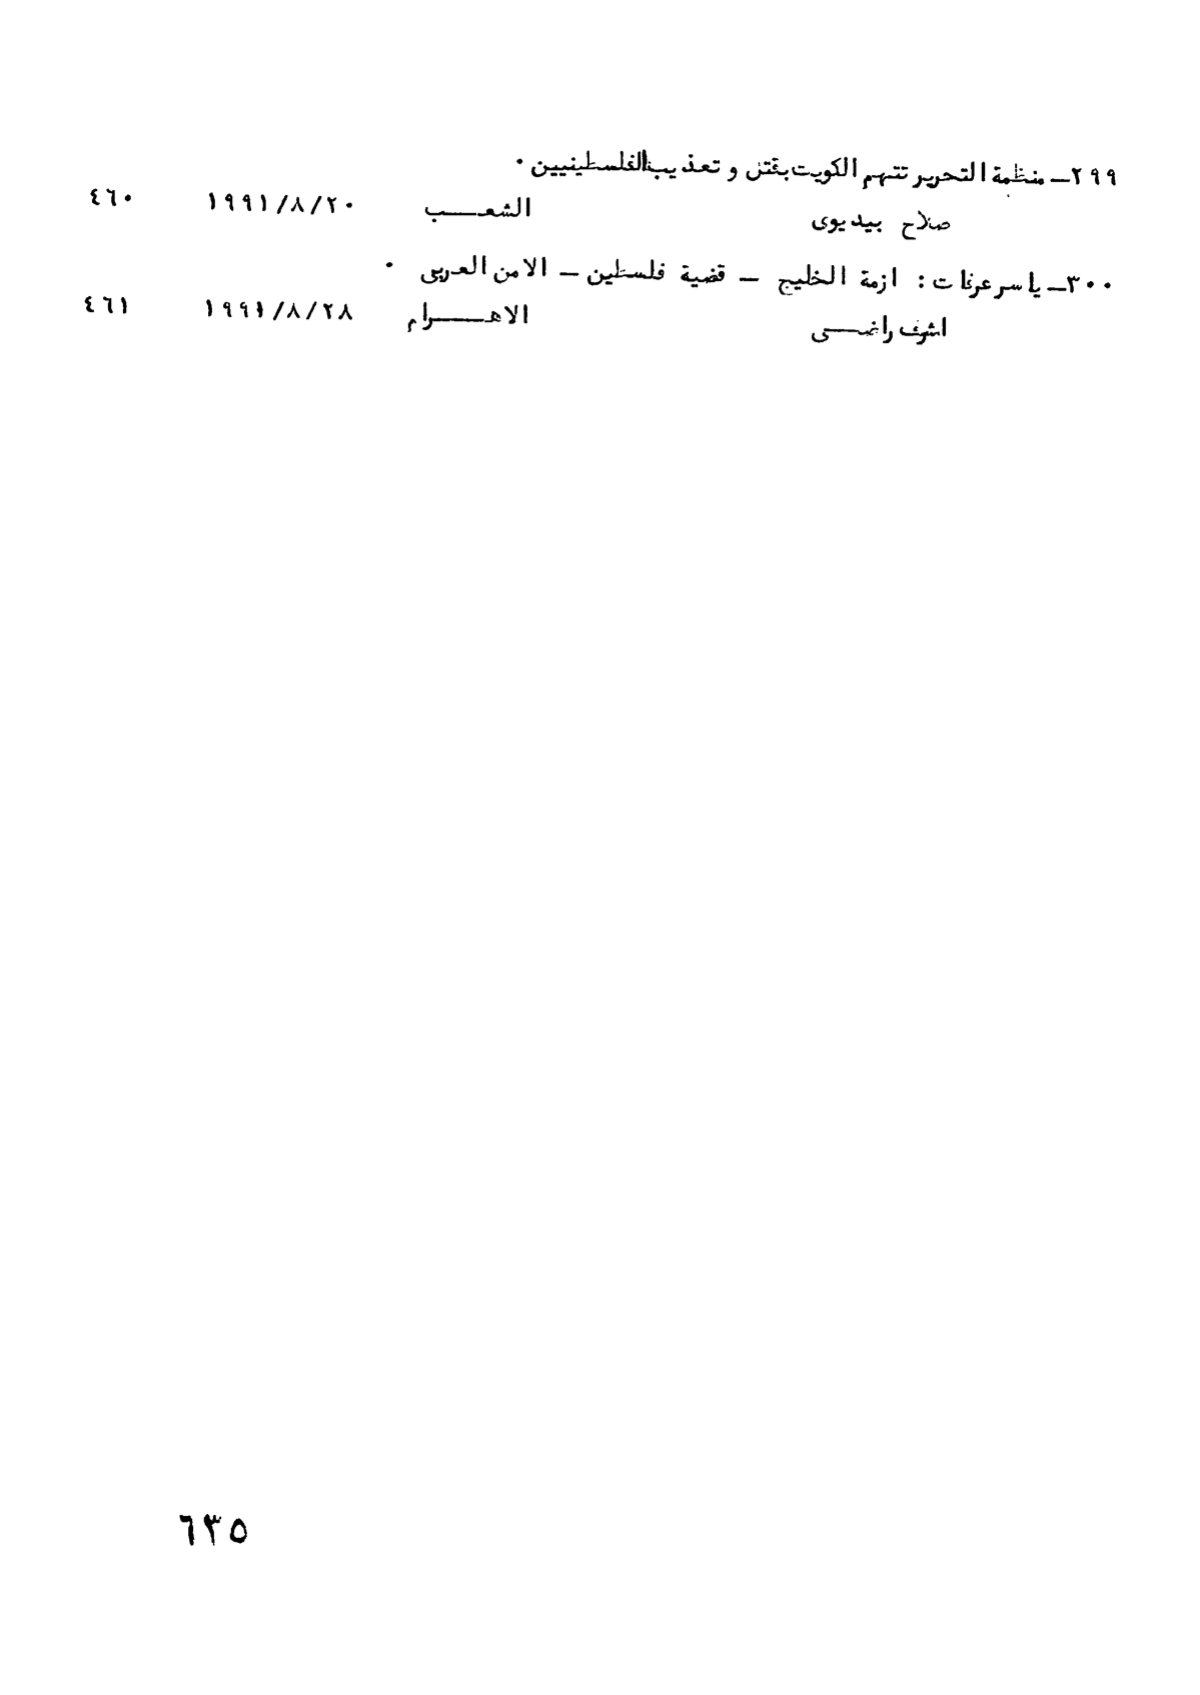 ٢٩٩ــ منظمة التحرير تتهم الكويت بقتل و تعذيب الفلسطينيين ٠
صلاح بيديوى الشعـــب ١٩٩١/٨/٢٠ ٤٦٠
٣٠٠ــ ياسر عرفات : ازمة الخليج – قضية فلسطين – الامن العربى ٠
اشرف راضــى الاهـــرام ١٩٩١/٨/٢٨ ٤٦١
٦٣٥